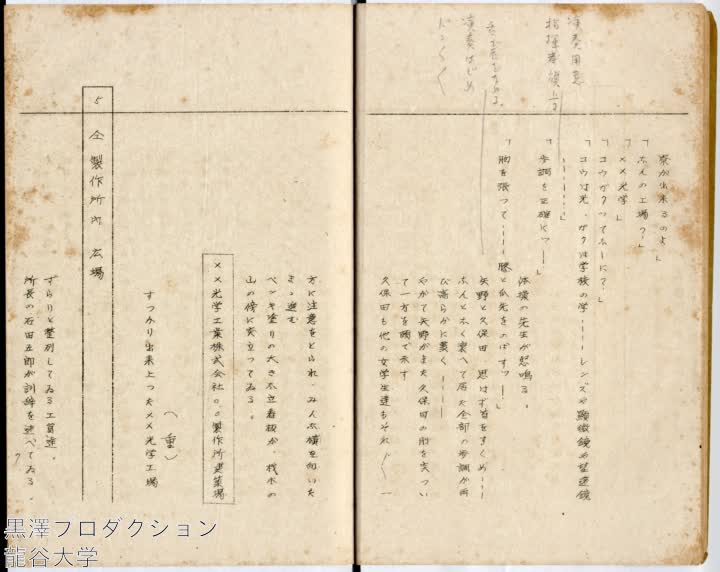 演奏用意
指揮者横山
演奏はじめ
ドンく
寮が出来るのよ」
「ほんの工場?」
「××光学」
「コウガクつてなーに?」
「コウは光、ガクは学校の学――レンズや顕微鏡や望遠鏡
――――」
「歩調を正確にッ―」
「胸を張つて――――膝と爪先をのばすッ―」
体操の先生が怒鳴る。
矢野と久保田、思はず首をすくめ――
ほんと永く裏へて居た全部の歩調が再
び高らかに轟く――
やがて矢野がまた久保田の肘を突つい
て一方を顎で示す
久保田も他の女学生達もそれぐ一
方に注意をとられ、みんな横を向いた
まゝ進む
ペンキ塗りの大きな立看板が、材木の
山の傍に突立つてゐる。
××光学工業株式会社○○製作所建築場
(重)
すつかり出来上つた××光学工場
5 仝 製作所内 広場
ずらりと整列してゐる工員達。
所長の石田五郎が訓辞を述べてゐる。
黒澤プロダクション
龍谷大学